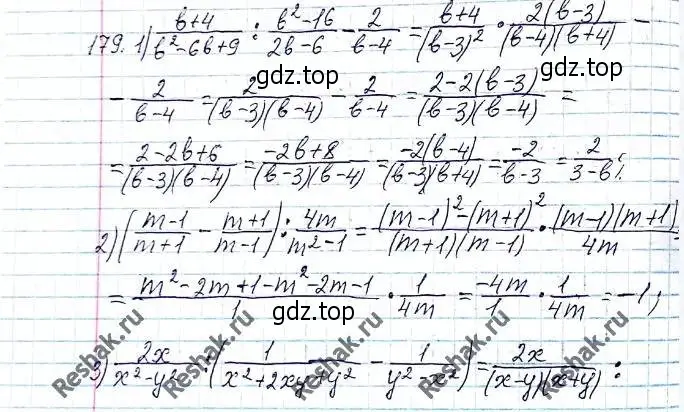 179. 1) (b+4)/(b²-6b+9) : (b²-16)/(2b-6) - 2/(b-4) = (b+4)/(b-3)² · 2(b-3)/((b-4)(b+4)) -
gdz.top
- 2/(b-4) = 2/((b-3)(b-4)) - 2/(b-4) = (2-2(b-3))/((b-3)(b-4)) =
= (2-2b+6)/((b-3)(b-4)) = (-2b+8)/((b-3)(b-4)) = -2(b-4)/((b-3)(b+4)) = -2/(b-3) = 2/(3-b);
2) ((m-1)/(m+1) - (m+1)/(m-1)) : 4m/(m²-1) = ((m-1)²-(m+1)²)/((m+1)(m-1)) · (m-1)(m+1)/4m =
= (m²-2m+1-m²-2m-1)/1 · 1/4m = -4m/1 · 1/4m = -1;
gdz.top
3) 2x/(x²-y²) : (1/(x²+2xy+y²) - 1/(y²-x²)) = 2x/((x-y)(x+y)) :
Reshak.ru
Reshak.ru
Reshak.ru
Reshak.ru